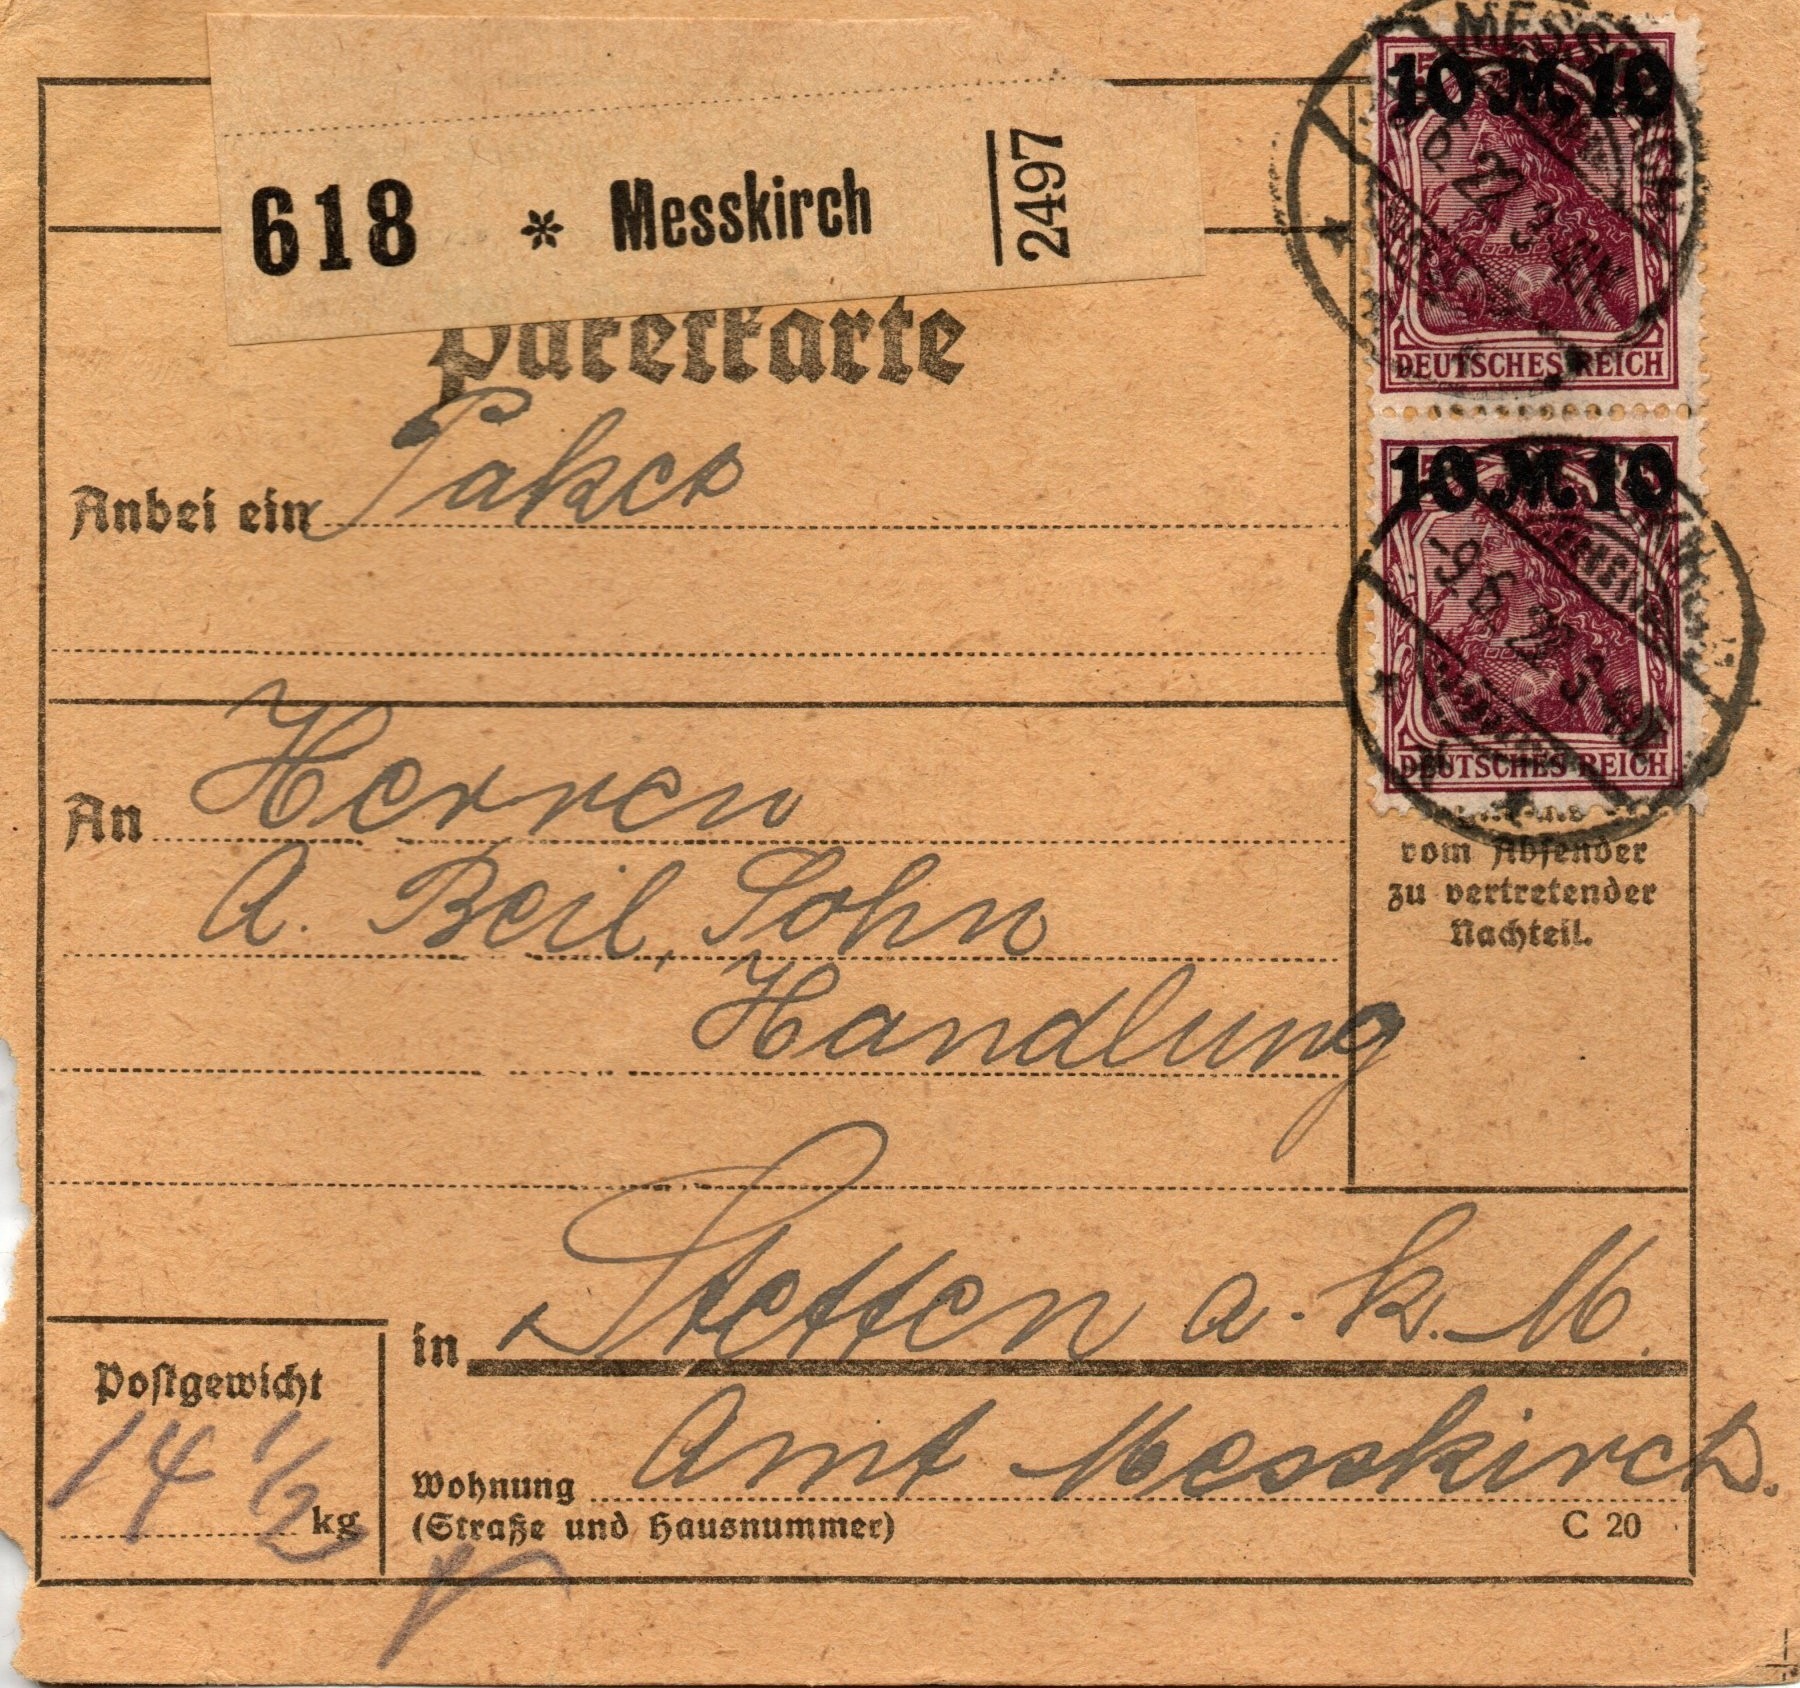 618 * Messkirch 2497
Paketkarte
10 M 10
DEUTSCHES REICH
10 M 10
DEUTSCHES REICH
Anbei ein Paket
An Herren
A. Beil, Sohn
Handlung
vom Absender
zu vertretender
Nachteil.
in Stetten a. k. M.
Postgewicht
14 1/2 kg
Amt Messkirch.
Wohnung
(Straße und Hausnummer)
C 20